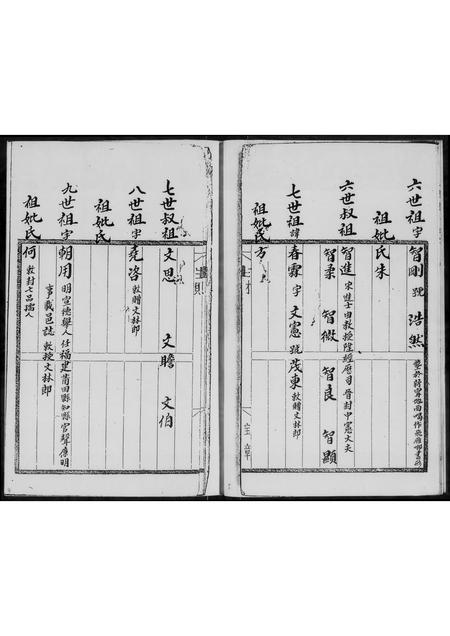 六世祖字智剛 號 浩然
祖妣氏朱
六世叔祖智進 宋進士由教授陞經歷司晉封中憲大夫
智柔 智微 智良 智顯
七世祖諱春霖 字 文憲 號 茂東 敕贈文林郎
祖妣氏方
七世叔祖 文思 文瞻 文伯
八世祖字堯咨 敕贈文林郎
祖妣氏
九世祖字朝用 明宣德舉人任福建莆田縣知縣官聲廉明
事載邑誌 敕授文林郎
祖妣氏何 敕封七品孺人